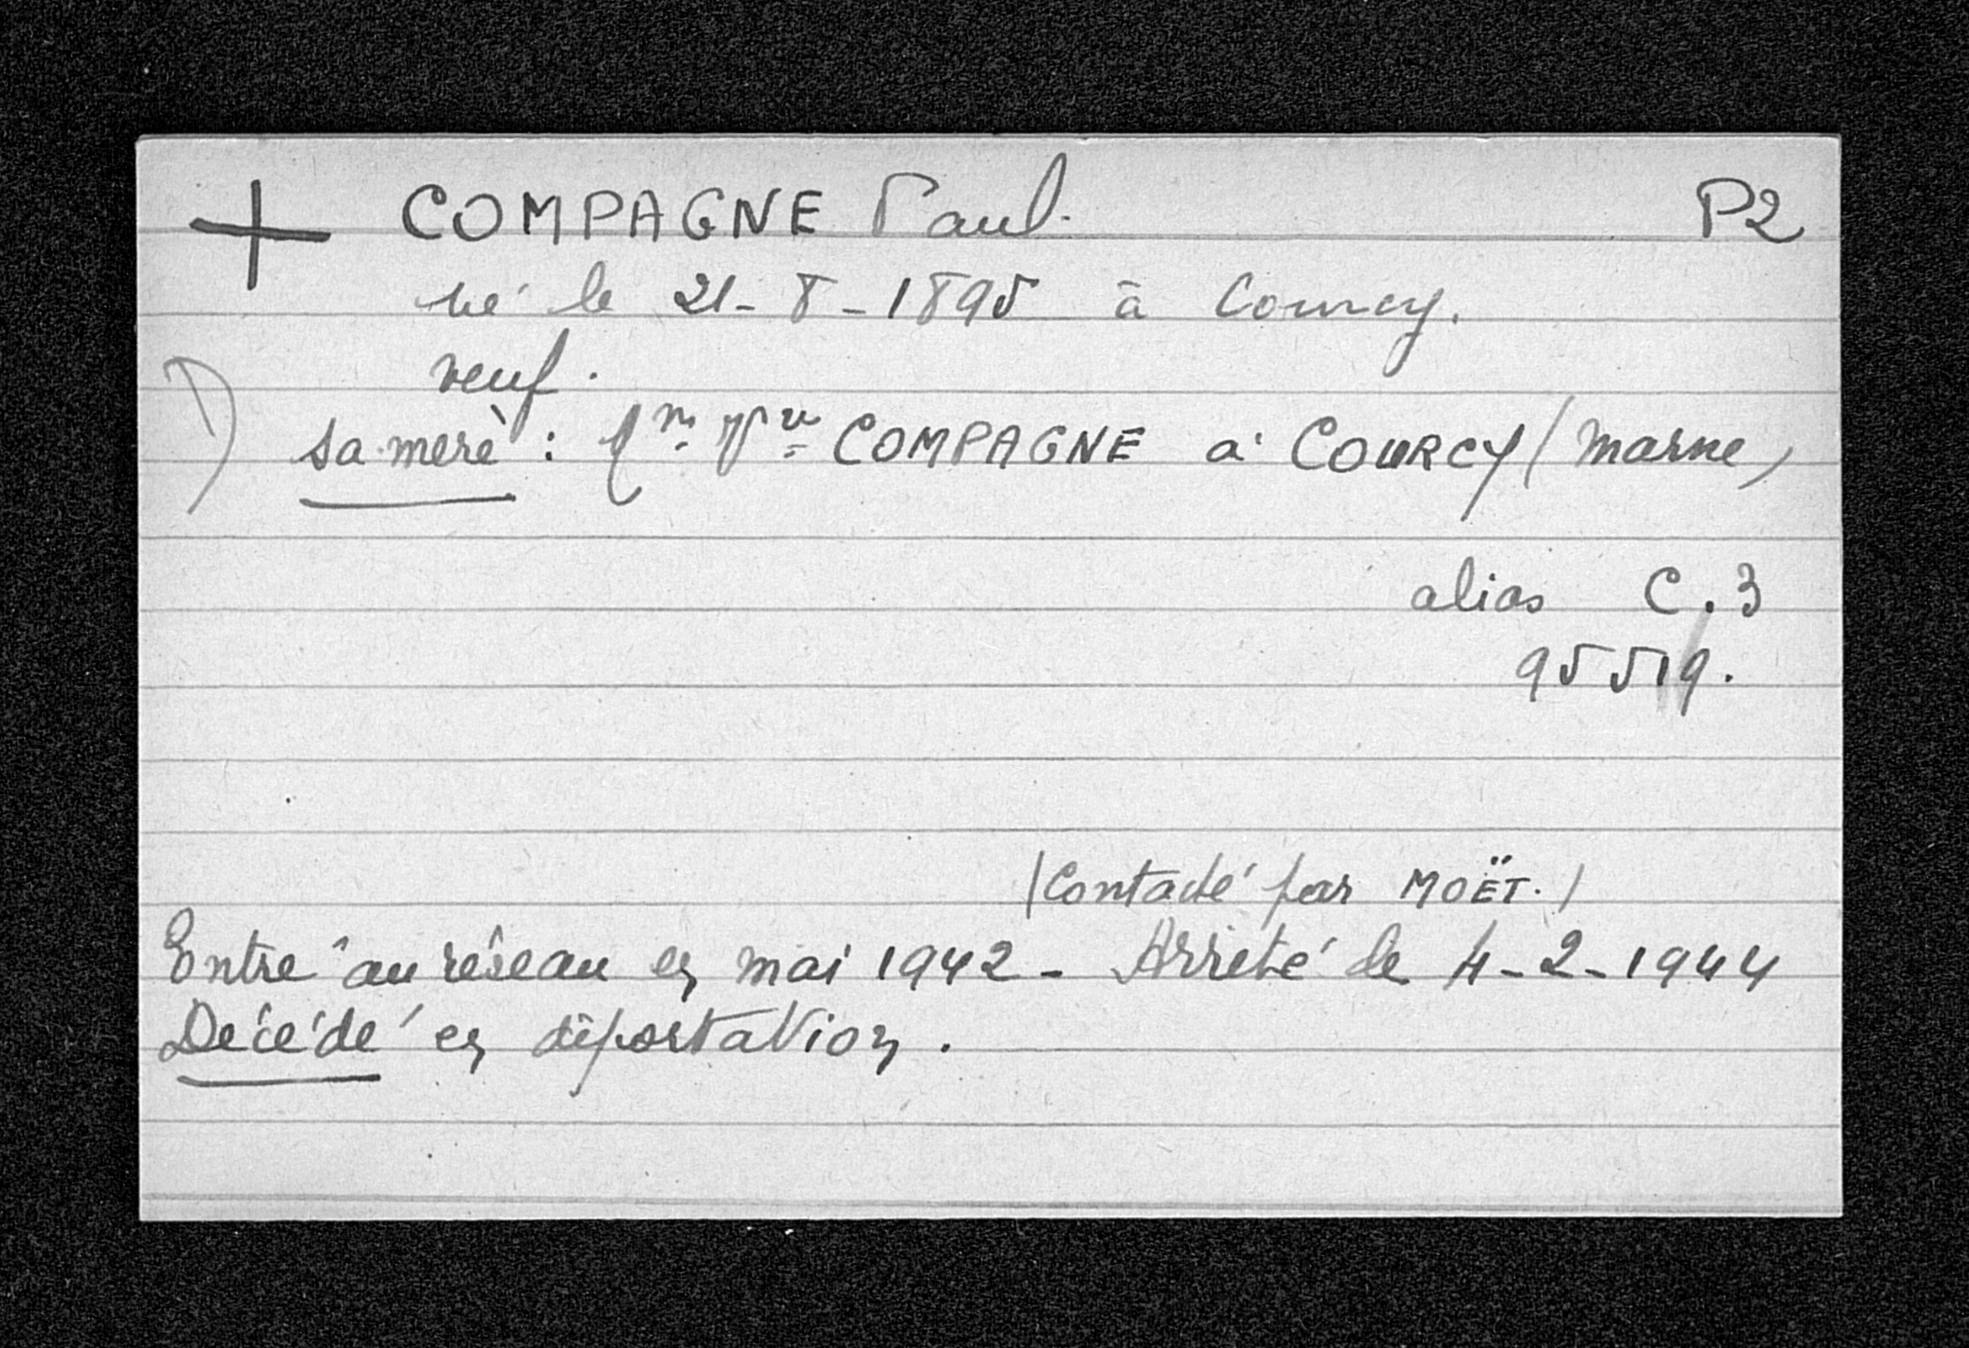 + COMPAGNE Paul. P2
né le 21-8-1895 à Courcy.
veuf.
D sa mère : Mme Vve COMPAGNE à COURCY (Marne)
alias C.3
95519.
(Contacté par MOËT.)
Entré au réseau en mai 1942 - Arrêté le 4-2-1944
Décédé en déportation.